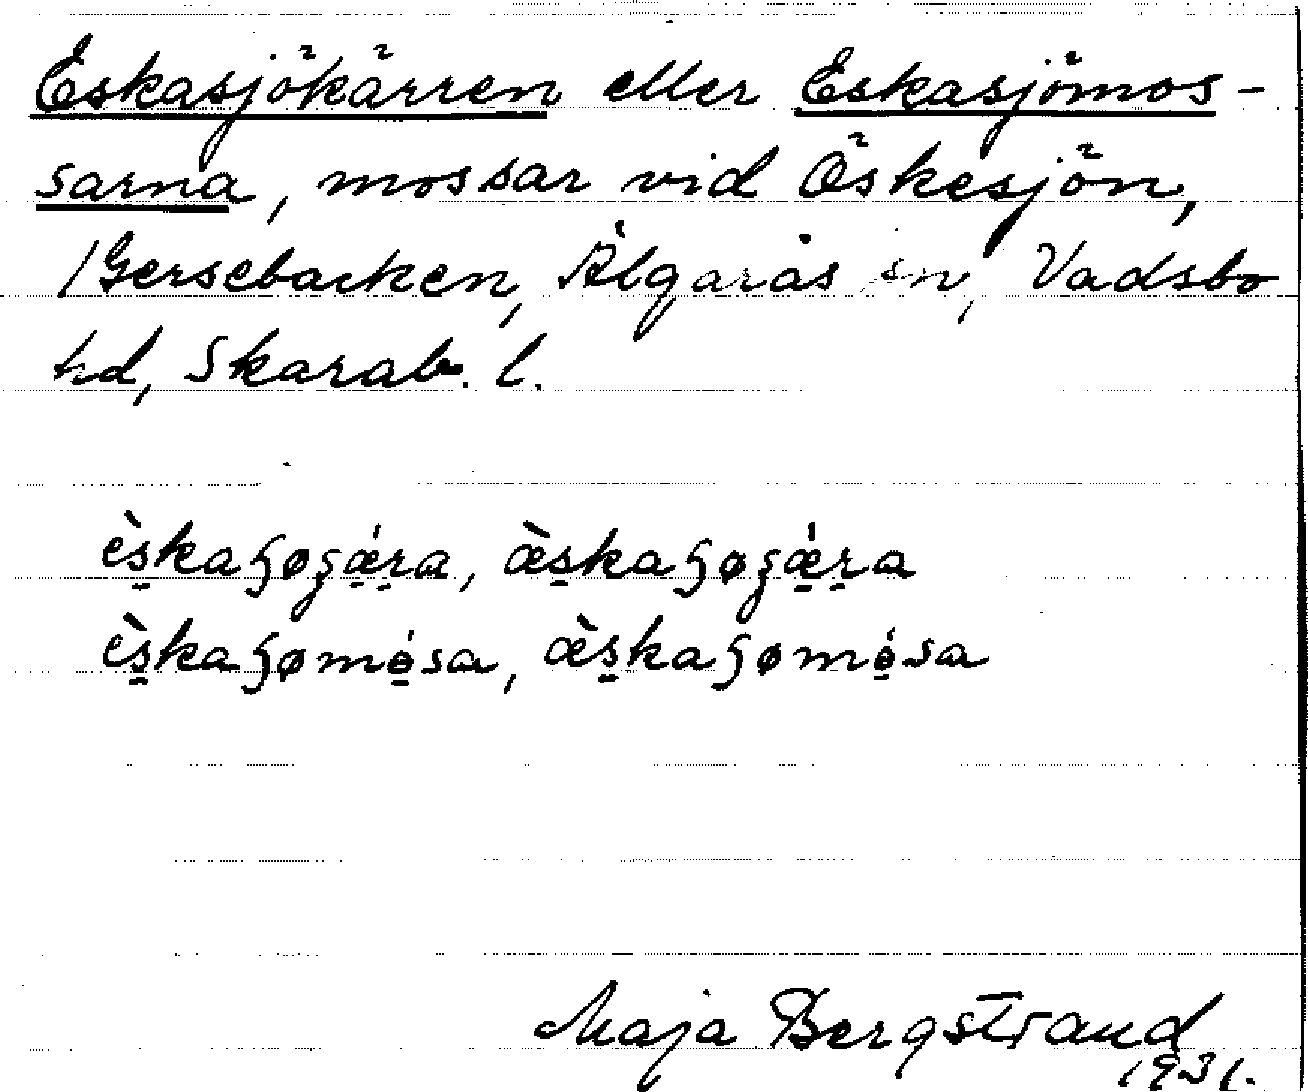 Eskasjökärren eller Eskasjömos-
sarna, mossar vid Öskesjön,
/Gersebacken, Älgarås sn, Vadsbo
hd, Skarab. l.
ès̱kaʂøʂǽ̱ṟa, æ̀s̱kaʂøʂǽ̱ṟa
ès̱kaʂømó̱sa, æ̀s̱kaʂømó̱sa
Maja Bergstrand
1931.